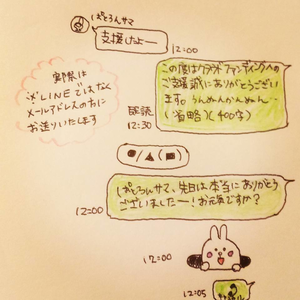 ぱとろんサマ
支援したよー
12:00
この度はクラウドファンディングへの
ご支援誠にありがとうござい
ます。うんぬんかんぬん…
(省略)(400字)
既読
12:30
実際は
※LINEではなく
メールアドレスの方に
お送りいたします
ぱとろんサマ、先日は本当にありがとう
ございましたー!お元気ですか?
12:00
12:00
12:05